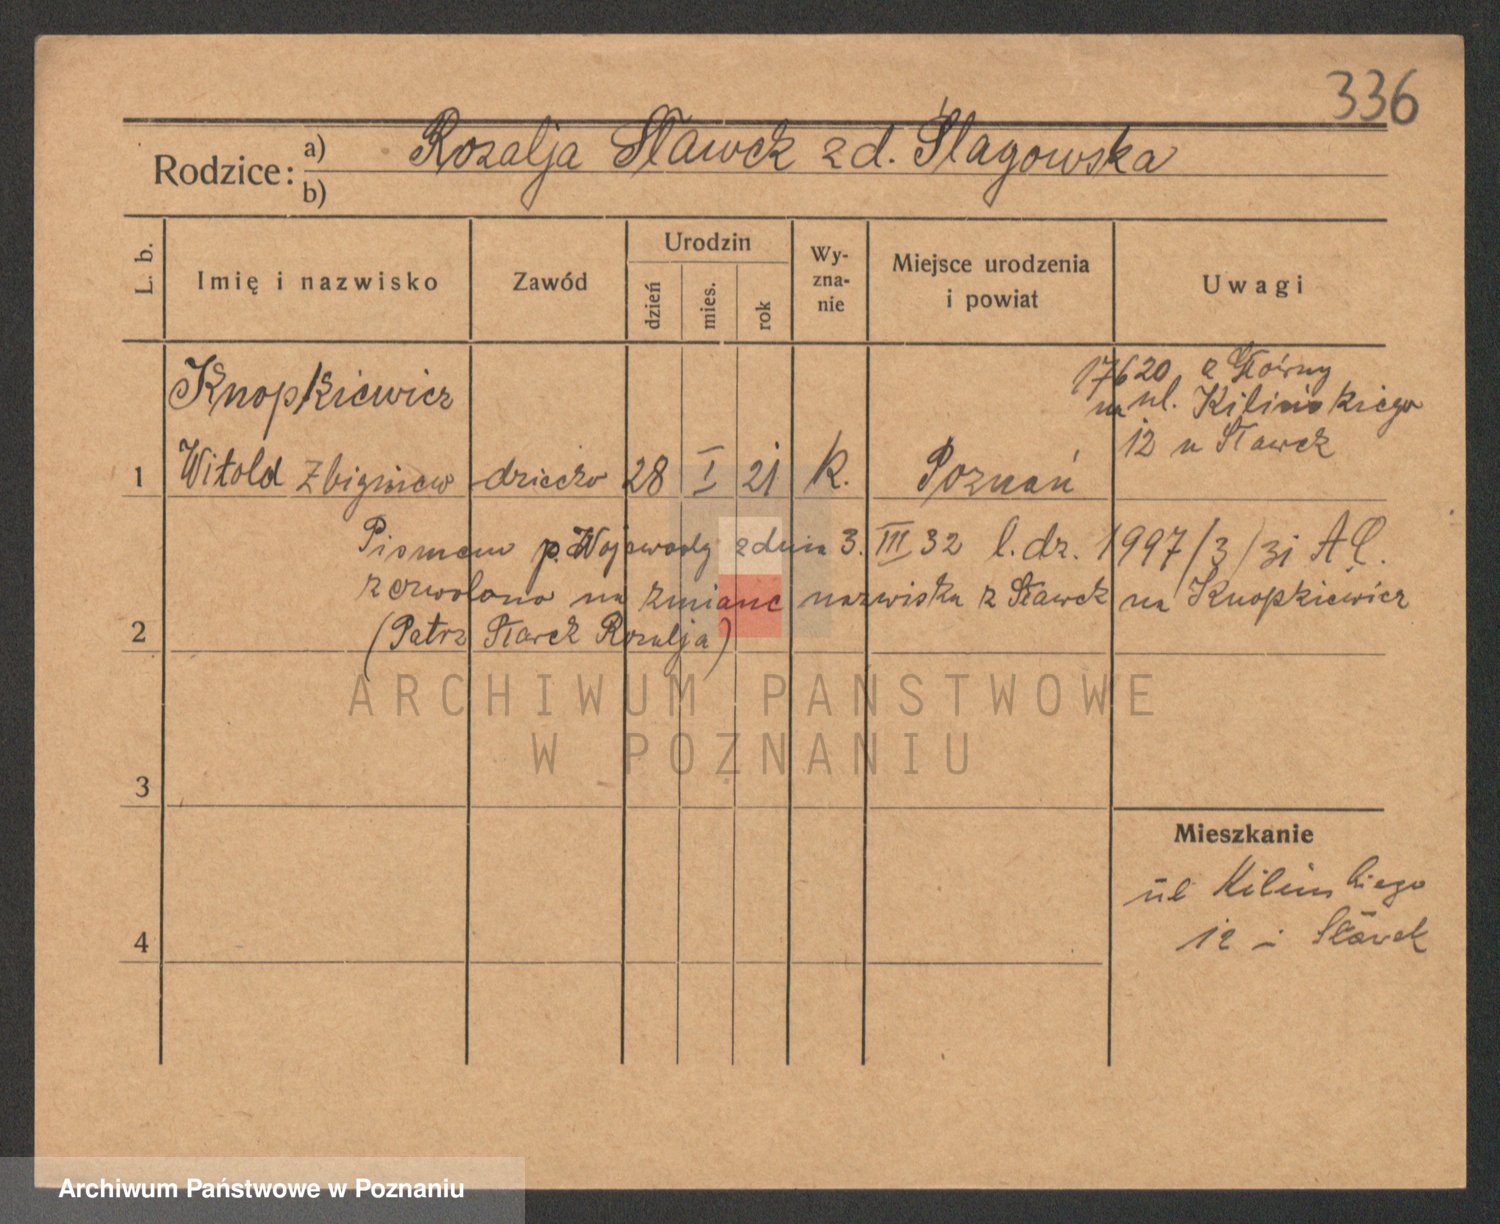 336
Rodzice: a) Rozalja Sławek zd. Ślagowska
b)
L. b. Imię i nazwisko Zawód Urodzin dzień mies. rok Wy-zna-nie Miejsce urodzenia i powiat Uwagi
17620 z Górny
Knopkiewicz na ul. Kilińskiego
12 u Sławek
1 Witold Zbigniew dziecko 28 I 21 k. Poznań
Pismem p. Wojewody z dnia 3. III 32 l. dz. 1997/3/31
zezwolono na zmianę nazwiska z Sławek na Knopkiewicz
2 (Patrz Sławek Rozalja)
ARCHIWUM PAŃSTWOWE
W POZNANIU
3
Mieszkanie
ul Kilińskiego
4 12 Sławek
Archiwum Państwowe w Poznaniu